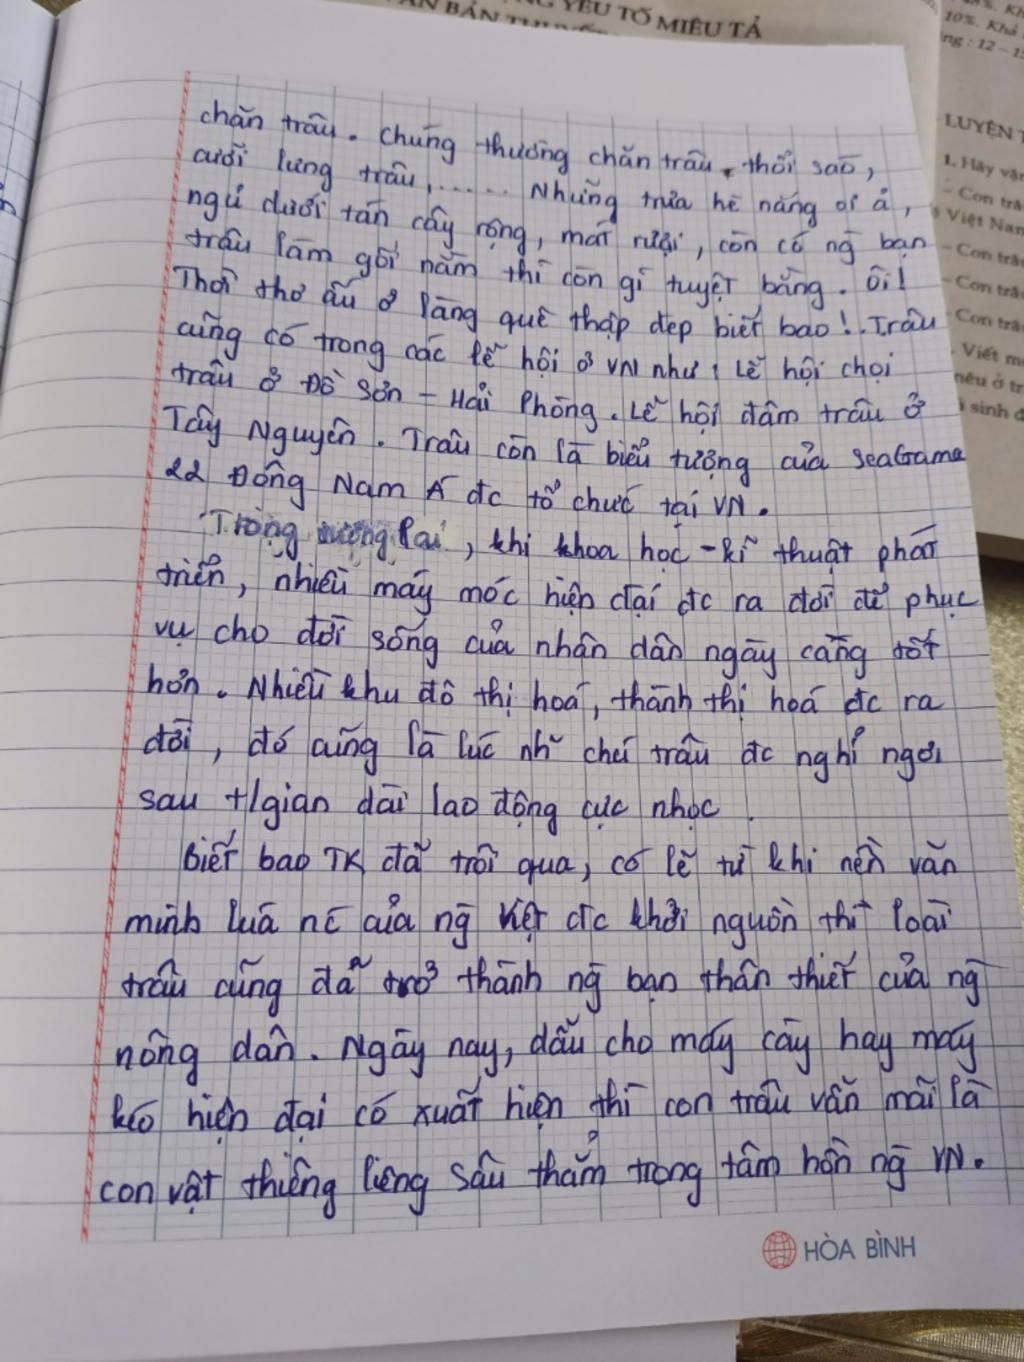 YẾU TỐ MIÊU TẢ
VĂN BẢN
chăn trâu. Chúng thường chăn trâu, thổi sáo,
cưỡi lưng trâu,..... Những trưa hè nắng oi ả,
ngủ dưới tán cây rộng, mát rượi, còn có ng̀ bạn
trâu làm gối nằm thì còn gì tuyệt bằng. Ôi!
Thời thơ ấu ở làng quê thật đẹp biết bao! Trâu
cũng có trong các lễ hội ở VN như: Lễ hội chọi
trâu ở Đồ Sơn - Hải Phòng. Lễ hội đâm trâu ở
Tây Nguyên. Trâu còn là biểu tượng của seaGame
22 Đông Nam Á đc tổ chức tại VN.
Trong tương lai, khi khoa học - kĩ thuật phát
triển, nhiều máy móc hiện đại đc ra đời để phục
vụ cho đời sống của nhân dân ngày càng tốt
hơn. Nhiều khu đô thị hoá, thành thị hoá đc ra
đời, đó cũng là lúc nh~ chú trâu đc nghỉ ngơi
sau t/gian dài lao động cực nhọc.
Biết bao TK đã trôi qua, có lẽ từ khi nền văn
minh lúa nc của ng̀ Việt đc khởi nguồn thì loài
trâu cũng đã trở thành ng̀ bạn thân thiết của ng̀
nông dân. Ngày nay, dẫu cho máy cày hay máy
kéo hiện đại có xuất hiện thì con trâu vẫn mãi là
con vật thiêng liêng sâu thẳm trong tâm hồn ng̀ VN.
HÒA BÌNH
10%. Khả
ng : 12 – 1
LUYỆN
1. Hãy vận
- Con trâ
Việt Nam
- Con trâ
- Con trâ
- Con trâ
Viết m
nêu ở tr
sinh đ